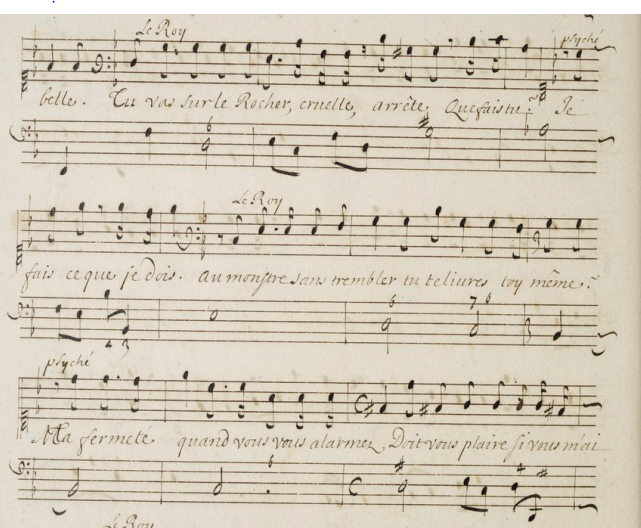 Le Roy psyché
belle. Tu vas sur le Rocher, cruelle, arrête, Que fais tu? Je
6
Le Roy
fais ce que je dois. au monstre sans trembler tu te livres toy même?
4 3 6 7 6
psyché
Ma fermeté quand vous vous alarmez, Doit vous plaire si vous m'ai
6
Le Roy